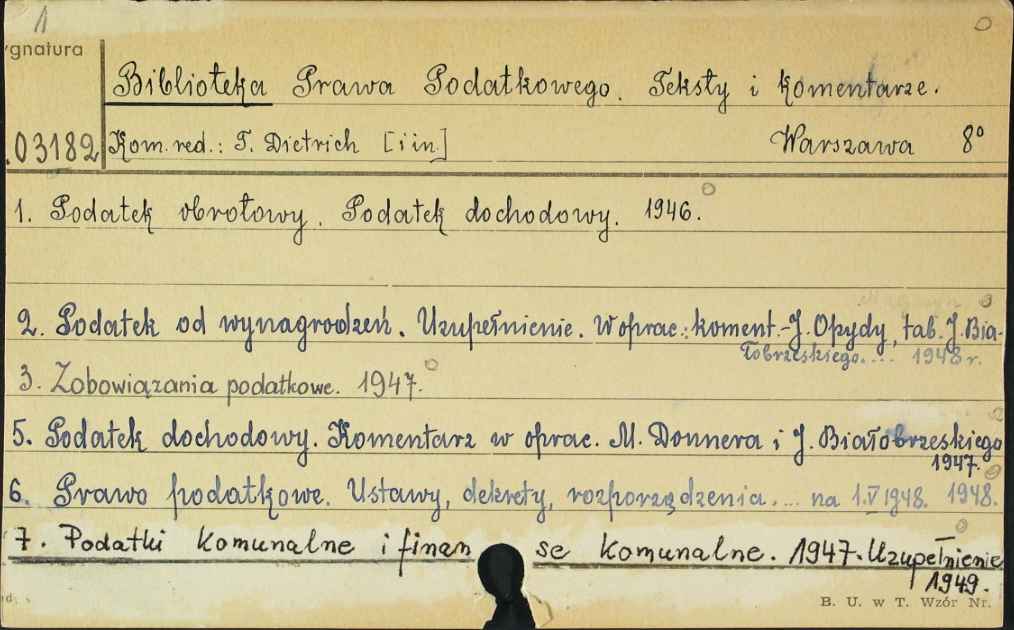 1
ygnatura
Biblioteka Prawa Podatkowego. Teksty i komentarze.
.03182 Kom. red.: T. Dietrich [i in.] Warszawa 8°
1. Podatek obrotowy. Podatek dochodowy. 1946.
2. Podatek od wynagrodzeń. Uzupełnienie. W oprac.: koment.-J. Opydy, tab. J. Bia-
łobrzeskiego.... 1948 r.
3. Zobowiązania podatkowe. 1947.
5. Podatek dochodowy. Komentarz w oprac. M. Donnera i J. Białobrzeskiego
1947.
6. Prawo podatkowe. Ustawy, dekrety, rozporządzenia.... na 1.V 1948. 1948.
7. Podatki komunalne i finan se komunalne. 1947. Uzupełnienie
1949.
B. U. w T. Wzór Nr.